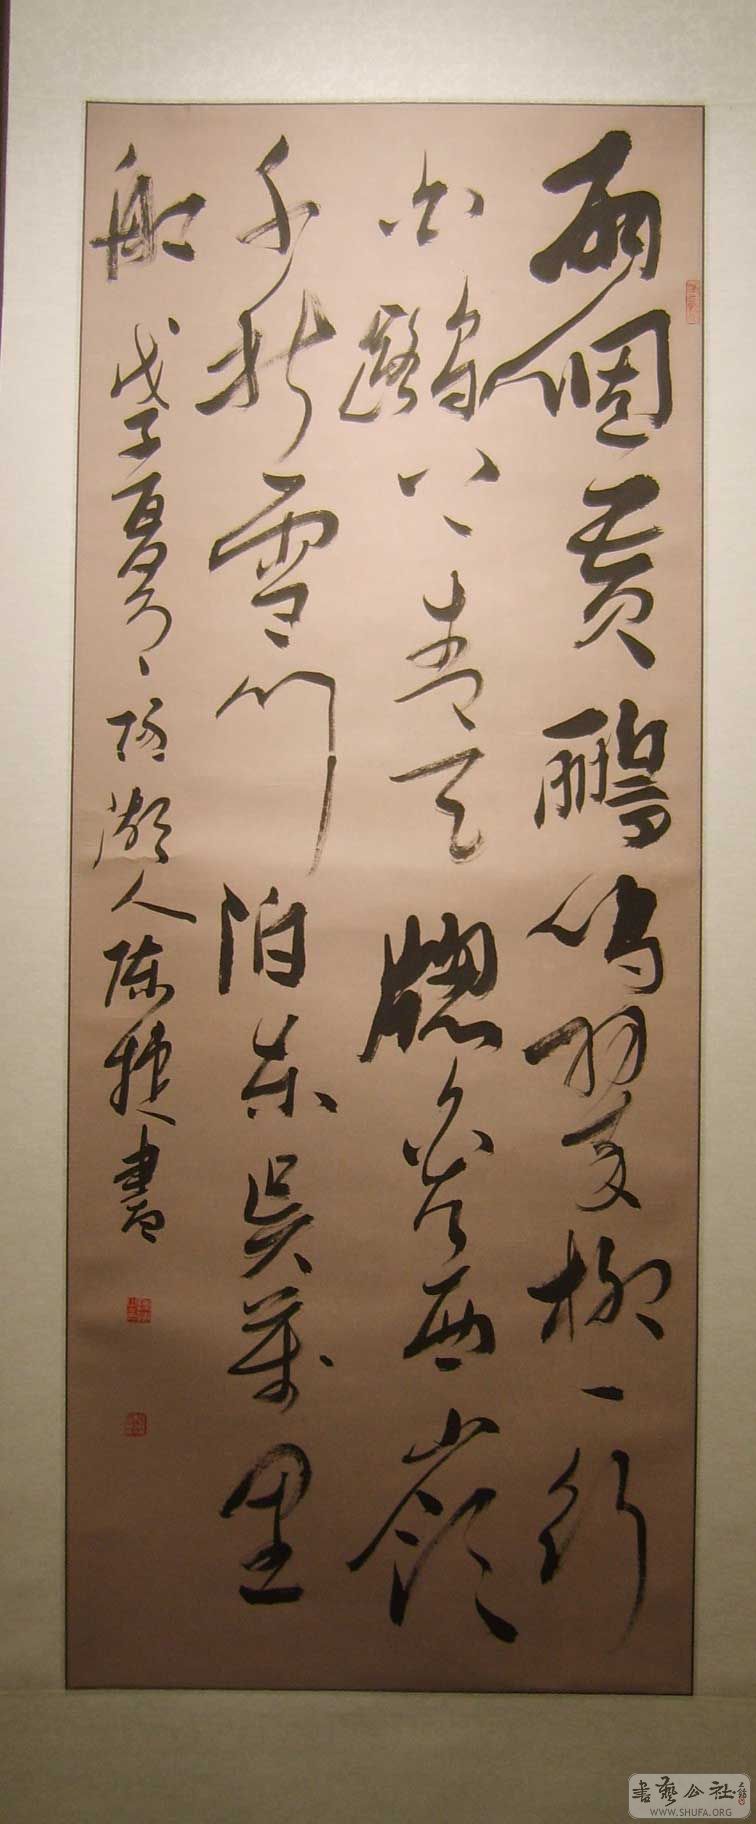 兩個黃鸝鳴翠柳一行
白鷺上青天牕含西嶺
千秋雪門泊東吳萬里
船 戊子夏 陽湖人陳捷書
書藝公社
WWW.SHUFA.ORG